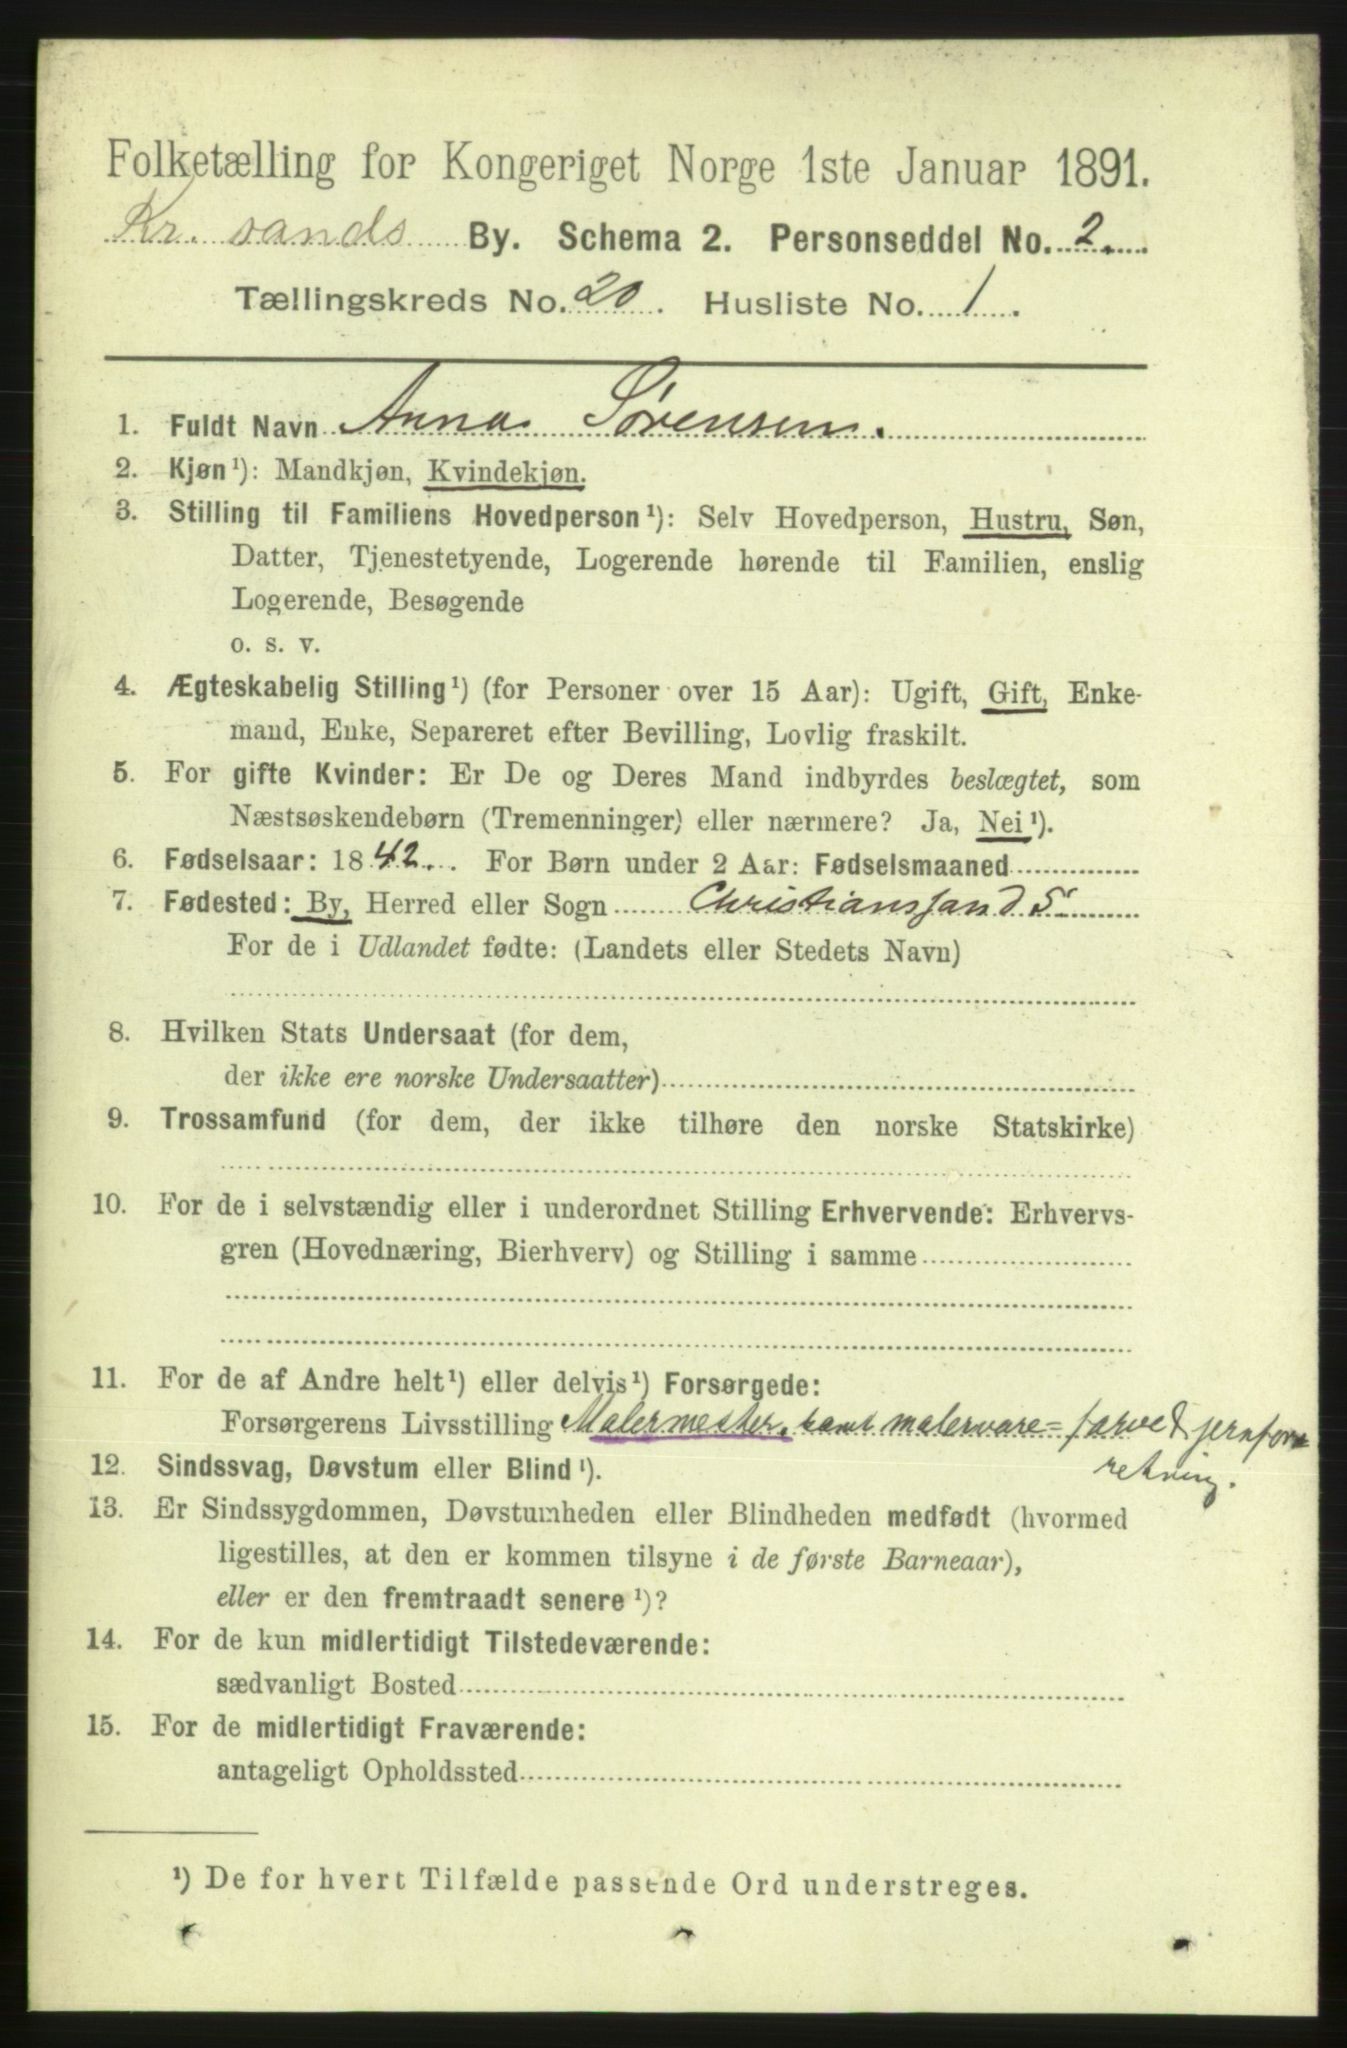 Folketælling for Kongeriget Norge 1ste Januar 1891.
Kr. sands By. Schema 2. Personseddel No. 2.
Tællingskreds No. 20. Husliste No. 1.
1. Fuldt Navn Anna Sørensen.
2. Kjøn¹): Mandkjøn, Kvindekjøn.
3. Stilling til Familiens Hovedperson¹): Selv Hovedperson, Hustru, Søn,
Datter, Tjenestetyende, Logerende hørende til Familien, enslig
Logerende, Besøgende
o. s. v.
4. Ægteskabelig Stilling¹) (for Personer over 15 Aar): Ugift, Gift, Enke-
mand, Enke, Separeret efter Bevilling, Lovlig fraskilt.
5. For gifte Kvinder: Er De og Deres Mand indbyrdes beslægtet, som
Næstsøskendebørn (Tremenninger) eller nærmere? Ja, Nei¹).
6. Fødselsaar: 1842. For Børn under 2 Aar: Fødselsmaaned
7. Fødested: By, Herred eller Sogn Christianssand S
For de i Udlandet fødte: (Landets eller Stedets Navn)
8. Hvilken Stats Undersaat (for dem,
der ikke ere norske Undersaatter)
9. Trossamfund (for dem, der ikke tilhøre den norske Statskirke)
10. For de i selvstændig eller i underordnet Stilling Erhvervende: Erhvervs-
gren (Hovednæring, Bierhverv) og Stilling i samme
11. For de af Andre helt¹) eller delvis¹) Forsørgede:
Forsørgerens Livsstilling Malermester, samt malervare= farve &
12. Sindssvag, Døvstum eller Blind¹).
retning.
13. Er Sindssygdommen, Døvstumheden eller Blindheden medfødt (hvormed
ligestilles, at den er kommen tilsyne i de første Barneaar),
eller er den fremtraadt senere¹)?
14. For de kun midlertidigt Tilstedeværende:
sædvanligt Bosted
15. For de midlertidigt Fraværende:
antageligt Opholdssted
¹) De for hvert Tilfælde passende Ord understreges.